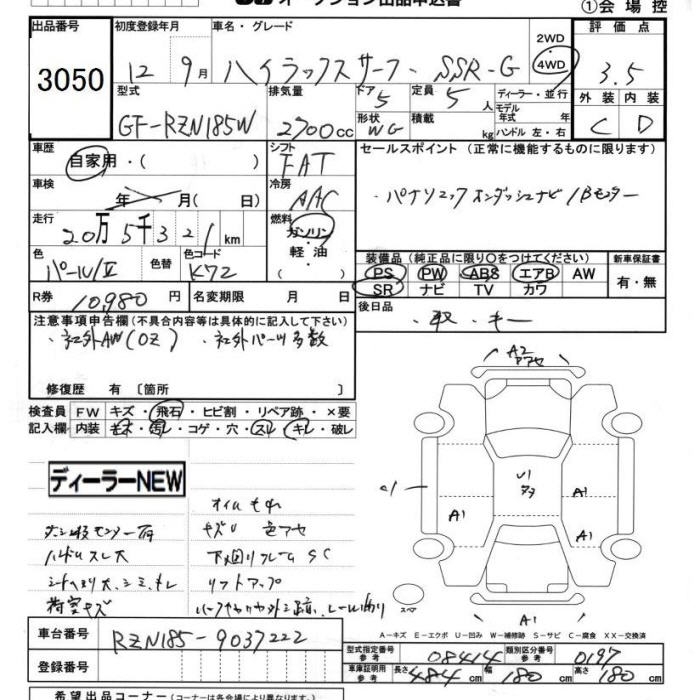 ①会場控
出品番号 初度登録年月 車名・グレード 2WD 4WD 評価点
3050 12 9月 ハイラックスサーフ・SSR-G 3.5
型式 排気量 ドア 5 定員 5人 ディーラー・並行 外装 内装
GF-RZN185W 2700cc 形状 WG 積載 kg モデル年式 年 ハンドル 左・右 C D
車歴 自家用・( ) シフト FAT セールスポイント(正常に機能するものに限ります)
車検 年 月( 日) 冷房 AAC ・パナソニックオンダッシュナビ/Bモニター
走行 20万5千321km 燃料 ガソリン・軽油・( )
装備品(純正品に限り○をつけてください) 新車保証書
色 パール/II 色替 色コード K72 PS PW ABS エアB AW 有・無
SR ナビ TV カワ
R券 10,980円 名変期限 月 日 後日品
・取・キー
注意事項申告欄(不具合内容等は具体的に記入して下さい)
・社外AW(OZ) ・社外パーツ多数
修復歴 有〔箇所 〕
検査員 FW キズ・飛石・ヒビ割・リペア跡・×要
記入欄 内装 キズ・汚レ・コゲ・穴・スレ・キレ・破レ
A2
アアセ
U1
タタ
A1
A1
A1
A1
スペア
ディーラーNEW
オイルもれ
キズU 色アセ
ハンドルスレ大 下廻りフレームSC
シートヘタリ大、シミ、キレ リフトアップ
荷室キズ
A-キズ E-エクボ U-凹み W-補修跡 S-サビ C-腐食 XX-交換済
車台番号 RZN185-9037222
型式指定番号 参考 08414 類別区分番号 参考 0197
登録番号 車庫証明用 参考 長さ 484cm 幅 180cm 高さ 180cm
希望出品コーナー(コーナーは各会場により異なります)